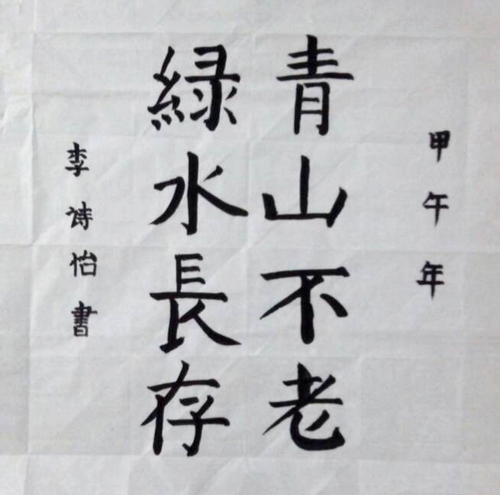 甲午年
青山不老
緑水長存
李诗怡書